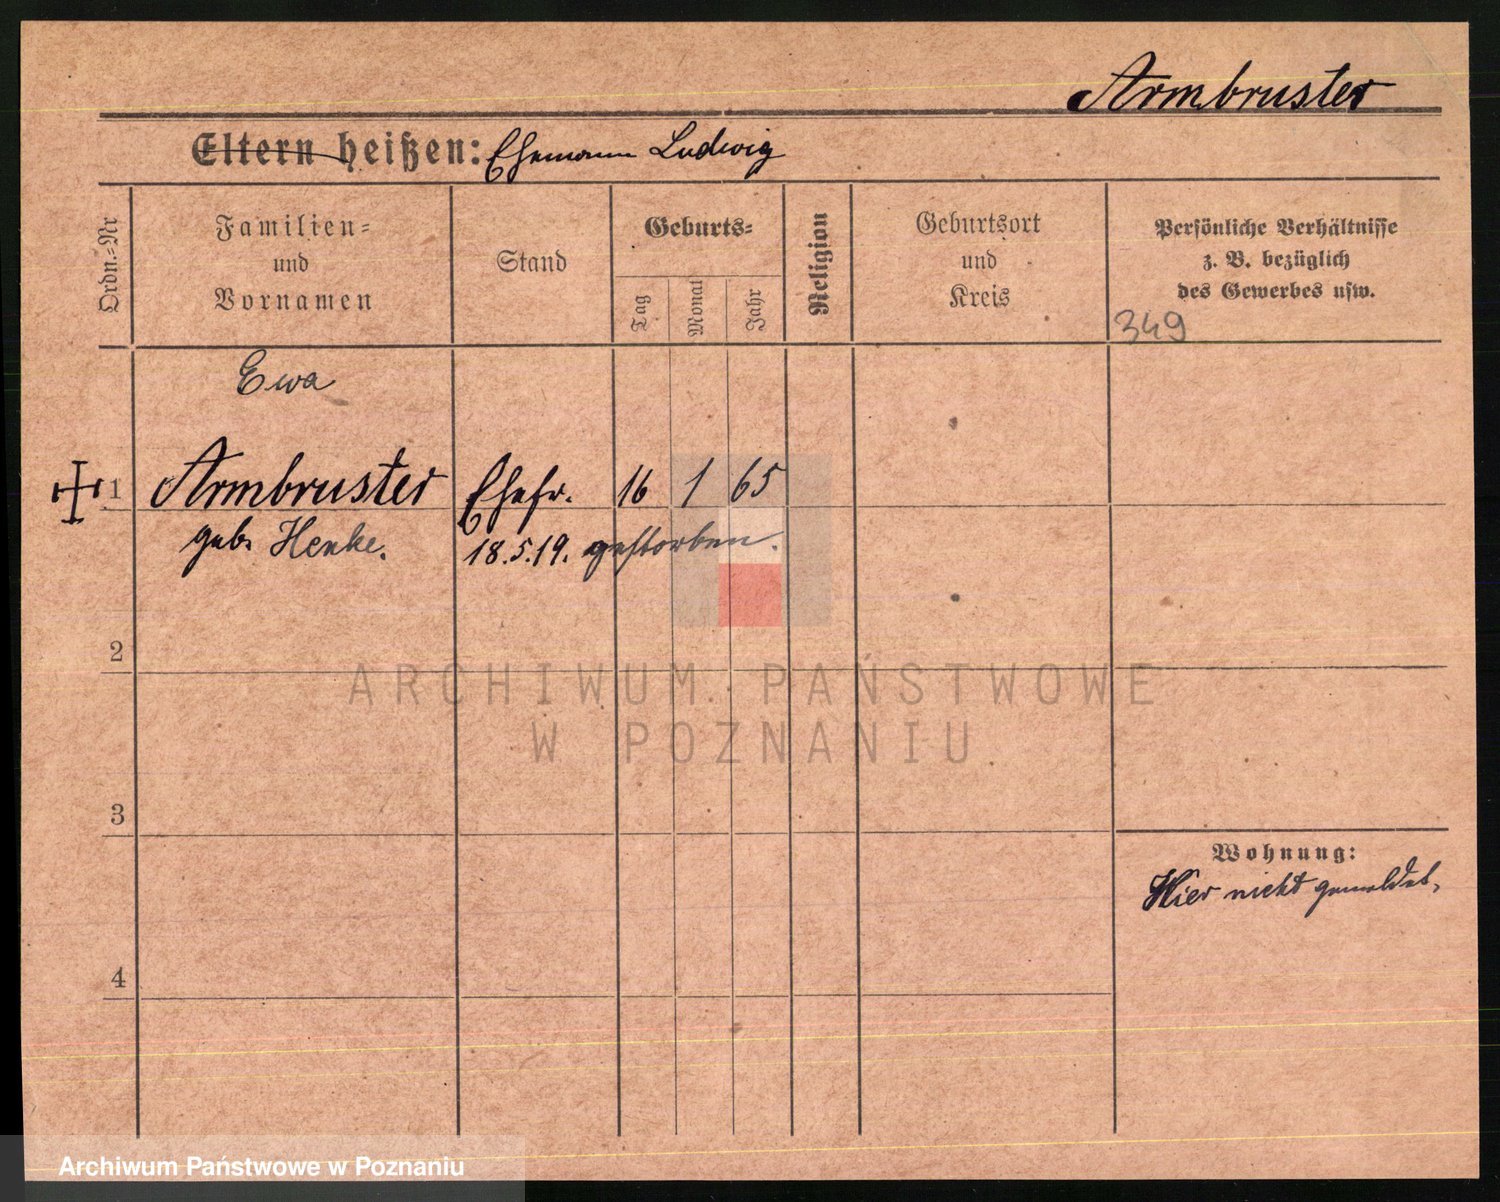 Armbruster
Eltern heißen: Ehemann Ludwig
Ordn.-Nr
Familien-
und
Vornamen
Stand
Geburts-
Tag
Monat
Jahr
Religion
Geburtsort
und
Kreis
Persönliche Verhältnisse
z. B. bezüglich
des Gewerbes usw.
349
Ewa
1 Armbruster Ehefr. 16 1 65
geb. Henke. 18.5.19. gestorben.
2
ARCHIWUM PAŃSTWOWE
W POZNANIU
3
Wohnung:
Hier nicht gemeldet.
4
Archiwum Państwowe w Poznaniu